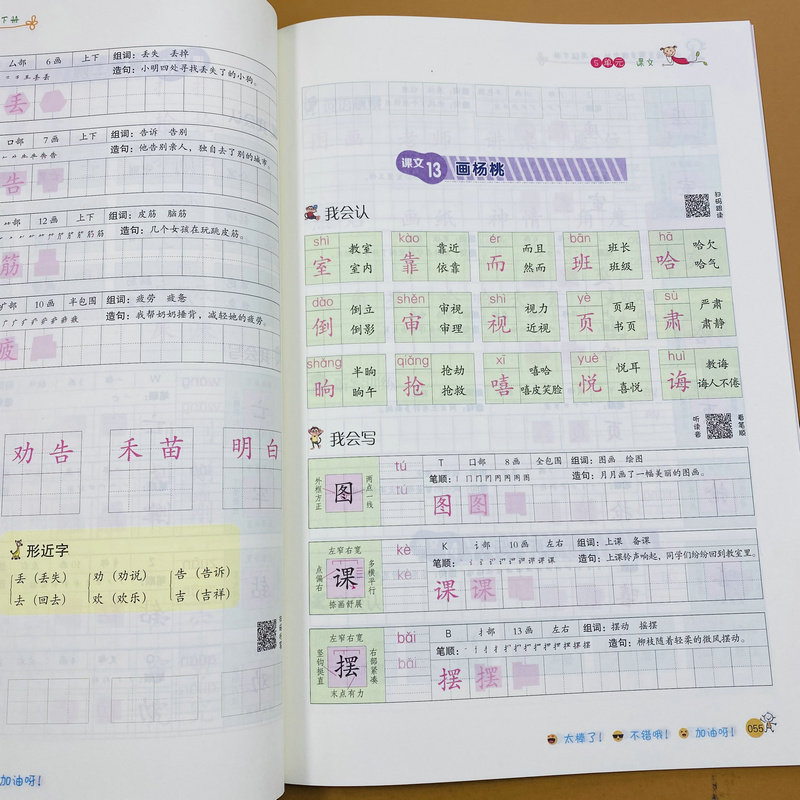 下册
厶部 6画 上下 组词：丢失 丢掉
造句：小明四处寻找丢失了的小狗。
丢
口部 7画 上下 组词：告诉 告别
造句：他告别亲人，独自去了别的城市。
告
12画 上下 组词：皮筋 脑筋
造句：几个女孩在玩跳皮筋。
筋
疒部 10画 半包围 组词：疲劳 疲惫
造句：我帮奶奶捶背，减轻她的疲劳。
疲
劝告 禾苗 明白
形近字
丢（丢失） 劝（劝说） 告（告诉）
去（回去） 欢（欢乐） 吉（吉祥）
加油呀！
5单元 课文
课文13 画杨桃
扫码跟读
我会认
shì kào ér bān hā
室 教室 室内 靠 靠近 依靠 而 而且 然而 班 班长 班级 哈 哈欠 哈气
dào shěn shì yè sù
倒 倒立 倒影 审 审视 审理 视 视力 近视 页 页码 书页 肃 严肃 肃静
shǎng qiǎng xī yuè huì
晌 半晌 晌午 抢 抢劫 抢救 嘻 嘻哈 嘻皮笑脸 悦 悦耳 喜悦 诲 教诲 诲人不倦
我会写
听读音 看笔顺
外框方正 图 两点一线
tú T 口部 8画 全包围 组词：图画 绘图
tú 笔顺： 造句：月月画了一幅美丽的图画。
图 图
左窄右宽
点偏右 课 多横平行
捺画舒展
kè K 讠部 10画 左右 组词：上课 备课
kè 笔顺： 造句：上课铃声响起，同学们纷纷回到教室里。
课 课
左窄右宽
竖钩挺直 摆 右部紧凑
末点有力
bǎi B 扌部 13画 左右 组词：摆动 摇摆
bǎi 笔顺： 造句：柳枝随着轻柔的微风摆动。
摆 摆
太棒了！ 不错哦！ 加油呀！ 055